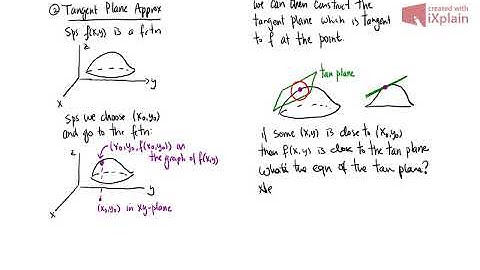 ② Tangent Plane Approx
Sps f(x,y) is a fctn
z
y
x
Sps we choose (x₀,y₀)
and go to the fctn:
z
(x₀,y₀,f(x₀,y₀)) on
the graph of f(x,y)
y
x
(x₀,y₀) in xy-plane
we can then construct the
tangent plane which is tangent
to f at the point.
tan plane
if some (x,y) is close to (x₀,y₀)
then f(x,y) is close to the tan plane
what's the eqn of the tan plane?
created with
iXplain